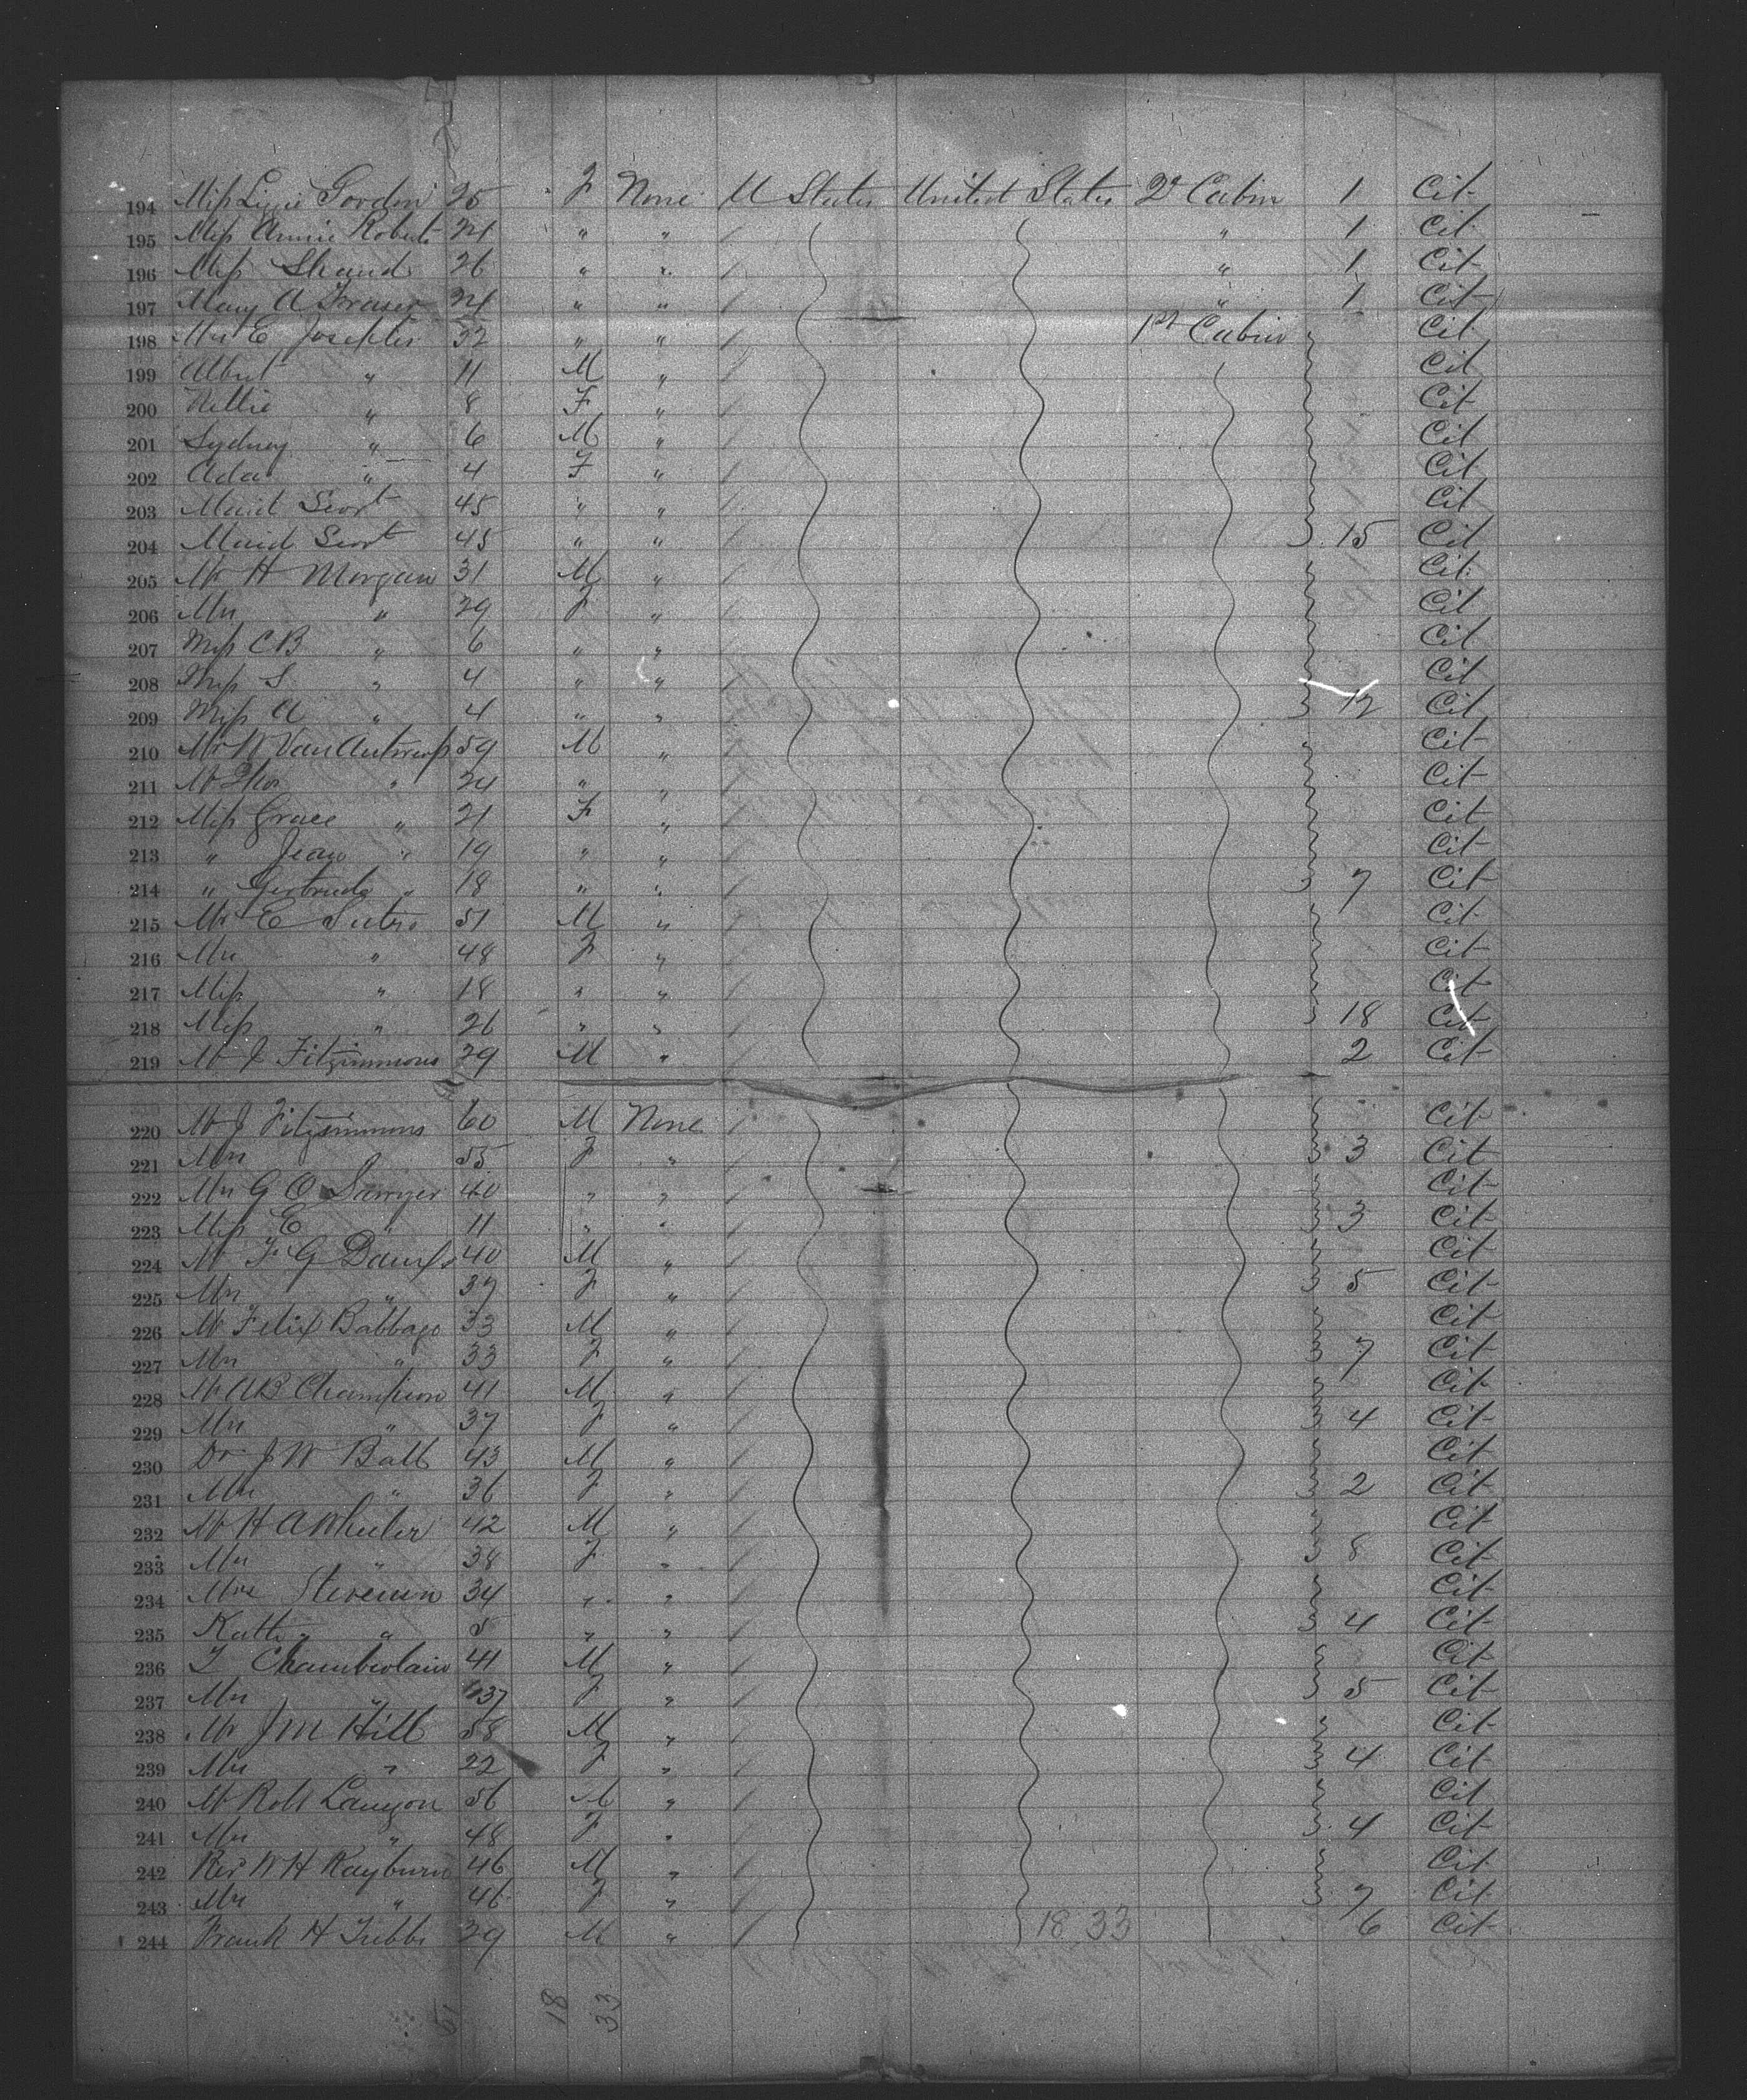 194 Miss Lizzie Gordon 25 F None U States United States 2d Cabin 1 Cit
195 Miss Annie Roberts 24 " " " 1 Cit
196 Miss Shand 26 " " " 1 Cit
197 Mary A Fraser 24 " " " 1 Cit
198 Mrs E Josephs 32 " " 1st Cabin Cit
199 Albert " 11 M " Cit
200 Nellie " 8 F " Cit
201 Sydney " 6 M " Cit
202 Ada " 4 F " Cit
203 Maid 45 " " Cit
204 Maid 45 " " 15 Cit
205 Mr H Morgan 31 M " Cit
206 Mrs " 29 F " Cit
207 Miss C B " 6 " " Cit
208 Miss S " 4 " " Cit
209 Miss A " 4 " " 12 Cit
210 Mr W Van Antwerp 59 M " Cit
211 Mr " 24 " " Cit
212 Miss Grace " 21 F " Cit
213 " Jean " 19 " " Cit
214 " Gertrude " 18 " " 7 Cit
215 Mr E Sutro 51 M " Cit
216 Mrs " 48 F " Cit
217 Miss " 18 " " Cit
218 Miss " 26 " " 18 Cit
219 Mr J Fitzsimmons 29 M " 2 Cit
220 Mr J Fitzsimmons 60 M None Cit
221 Mrs 55 F " 3 Cit
222 Mrs G O Sawyer 40 " " Cit
223 Miss E " 11 " " 3 Cit
224 Mr F G 40 M " Cit
225 Mrs " 37 F " 5 Cit
226 Mr Felix Babbage 33 M " Cit
227 Mrs " 33 F " 7 Cit
228 Mr A B Champion 41 M " Cit
229 Mrs " 37 F " 4 Cit
230 Dr J W Ball 43 M " Cit
231 Mrs " 36 F " 2 Cit
232 Mr H A Wheeler 42 M " Cit
233 Mrs " 38 F " 8 Cit
234 Mrs Stevenson 34 " " Cit
235 " 5 " " 4 Cit
236 Chamberlain 41 M " Cit
237 Mrs " 37 F " 5 Cit
238 Mr J M Hill 58 M " Cit
239 Mrs " 22 F " 4 Cit
240 Mr Robt Lanyon 56 M " Cit
241 Mrs " 48 F " 4 Cit
242 Rev W H Rayburn 46 M " Cit
243 Mrs " 46 F " 7 Cit
244 Frank H Tubbs 39 M " 18 33 6 Cit
51 18 33